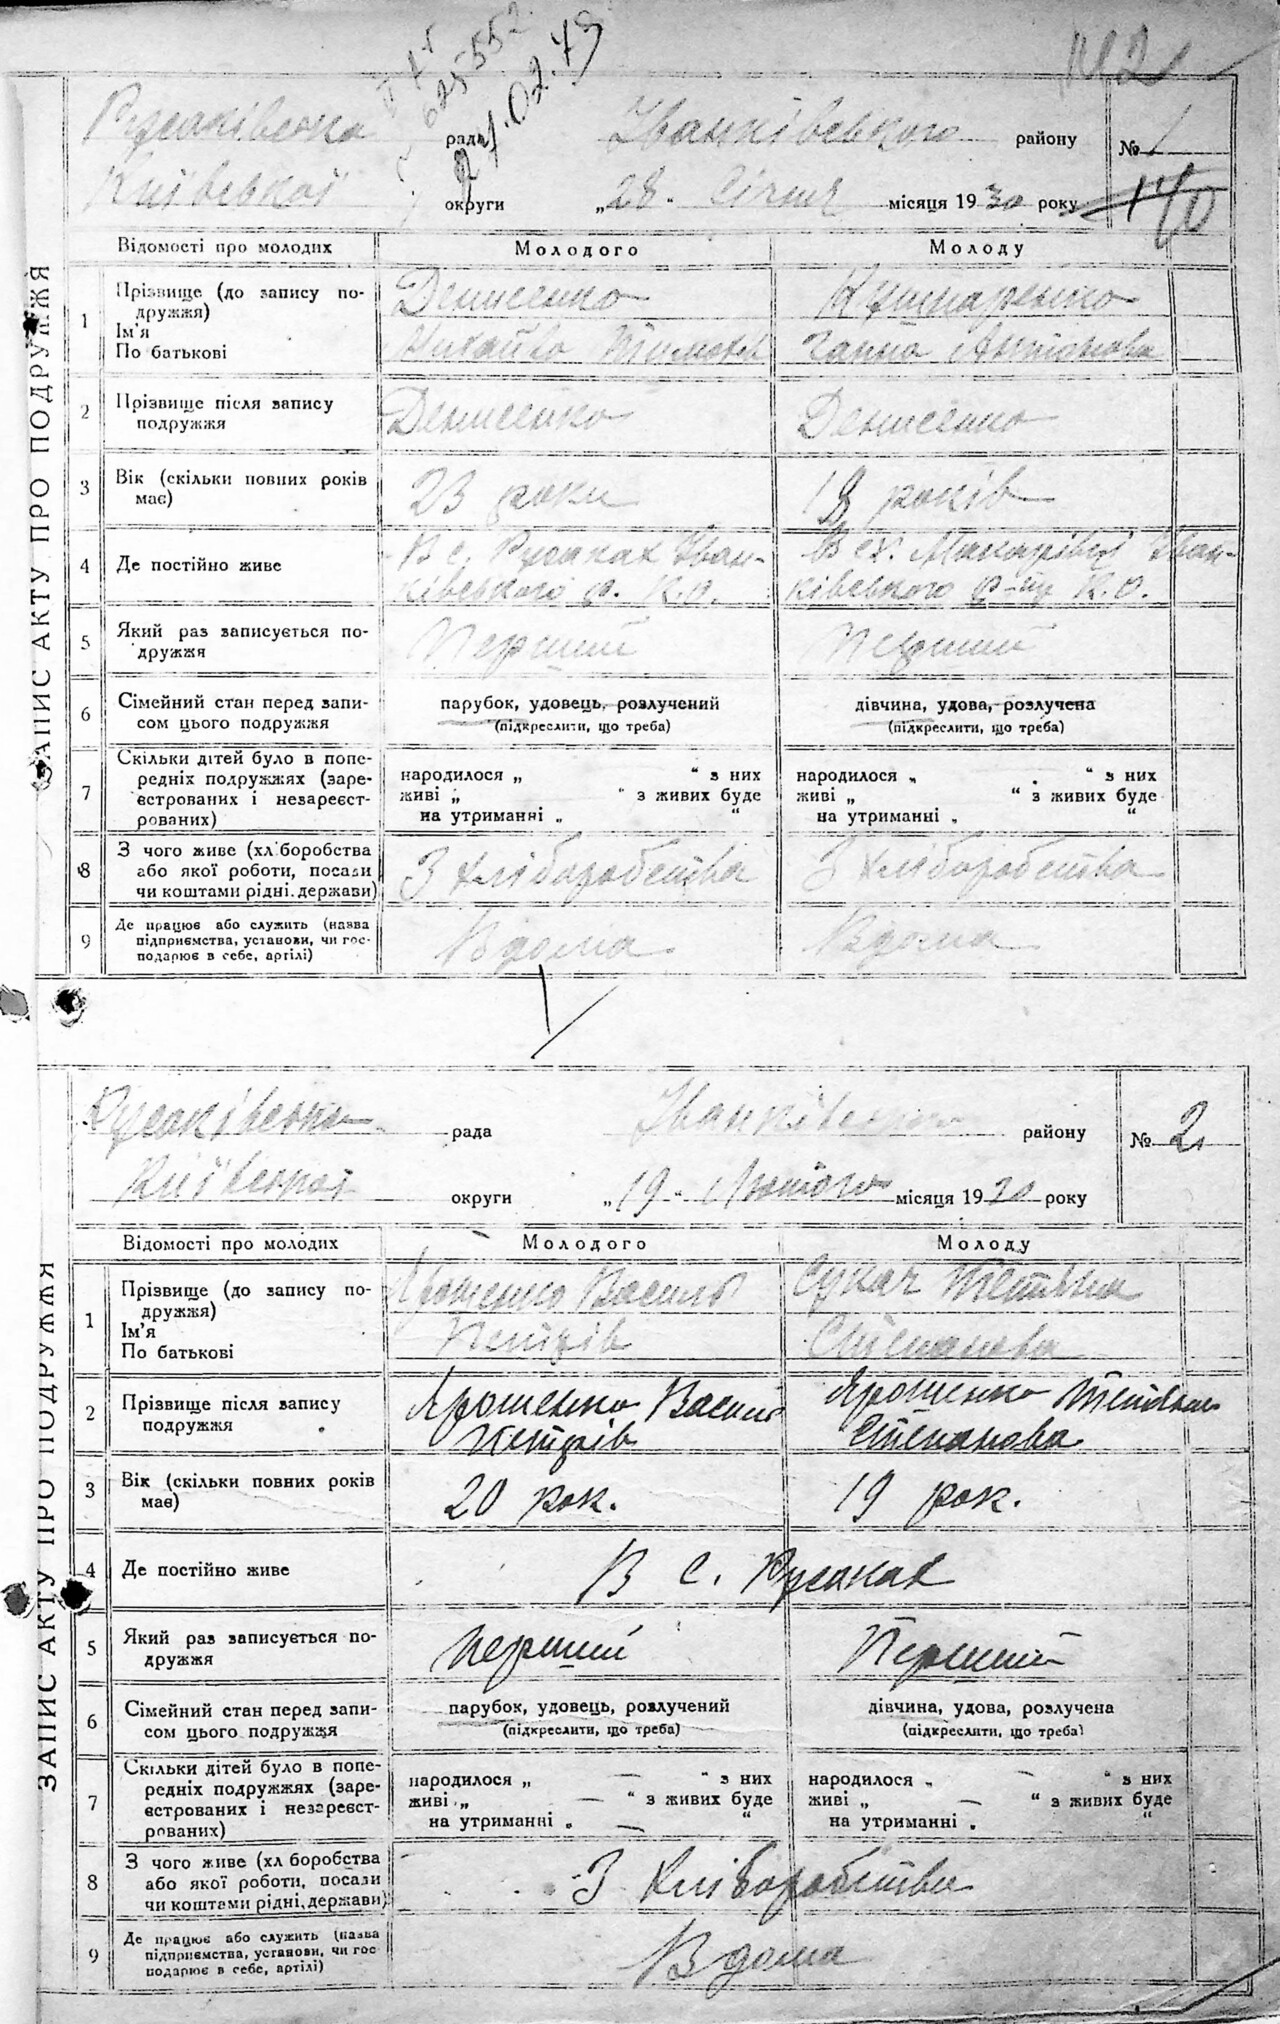 625552
21.02.49
№ 2
Русаківська рада Іванківського району № 1
Київської округи „28" Січня місяця 1930 року
ЗАПИС АКТУ ПРО ПОДРУЖЖЯ
Відомості про молодих Молодого Молоду
1 Прізвище (до запису по- Денисенко Кушнаренко
дружжя)
Ім'я
По батькові Тимофіїв Ганна Антонова
2 Прізвище після запису Денисенко Денисенко
подружжя
3 Вік (скільки повних років 23 роки 18 років
має)
4 Де постійно живе В с. Русаках Іван- В сх. Макарівці Іван-
ківського р. К.О. ківського р-ну К.О.
5 Який раз записується по- Перший Перший
дружжя
6 Сімейний стан перед запи- парубок, удовець, розлучений дівчина, удова, розлучена
сом цього подружжя (підкреслити, що треба) (підкреслити, що треба)
7 Скільки дітей було в попе-
редніх подружжях (заре- народилося „ " з них народилося „ " з них
єстрованих і незареєст- живі „ " з живих буде живі „ " з живих буде
рованих) на утриманні „ " на утриманні „ "
8 З чого живе (хліборобства З хліборобства З хліборобства
або якої роботи, посади
чи коштами рідні, держави)
9 Де працює або служить (назва Вдома Вдома
підприємства, установи, чи гос-
подарює в себе, артілі)
Русаківська рада Іванківського району № 2
Київської округи „19" Лютого місяця 1930 року
ЗАПИС АКТУ ПРО ПОДРУЖЖЯ
Відомості про молодих Молодого Молоду
1 Прізвище (до запису по- Ярошенко Василь Сукач Тетяна
дружжя)
Ім'я Петрів Степанова
По батькові
2 Прізвище після запису Ярошенко Василь Ярошенко Тетяна
подружжя Петрів Степанова
3 Вік (скільки повних років 20 рок. 19 рок.
має)
4 Де постійно живе В с. Русаках
5 Який раз записується по- Перший Перший
дружжя
6 Сімейний стан перед запи- парубок, удовець, розлучений дівчина, удова, розлучена
сом цього подружжя (підкреслити, що треба) (підкреслити, що треба)
7 Скільки дітей було в попе-
редніх подружжях (заре- народилося „ — " з них народилося „ — " з них
єстрованих і незареєст- живі „ — " з живих буде живі „ — " з живих буде
рованих) на утриманні „ — " на утриманні „ "
8 З чого живе (хліборобства З хліборобства
або якої роботи, посади
чи коштами рідні, держави)
9 Де працює або служить (назва Вдома
підприємства, установи, чи гос
подарює в себе, артілі)